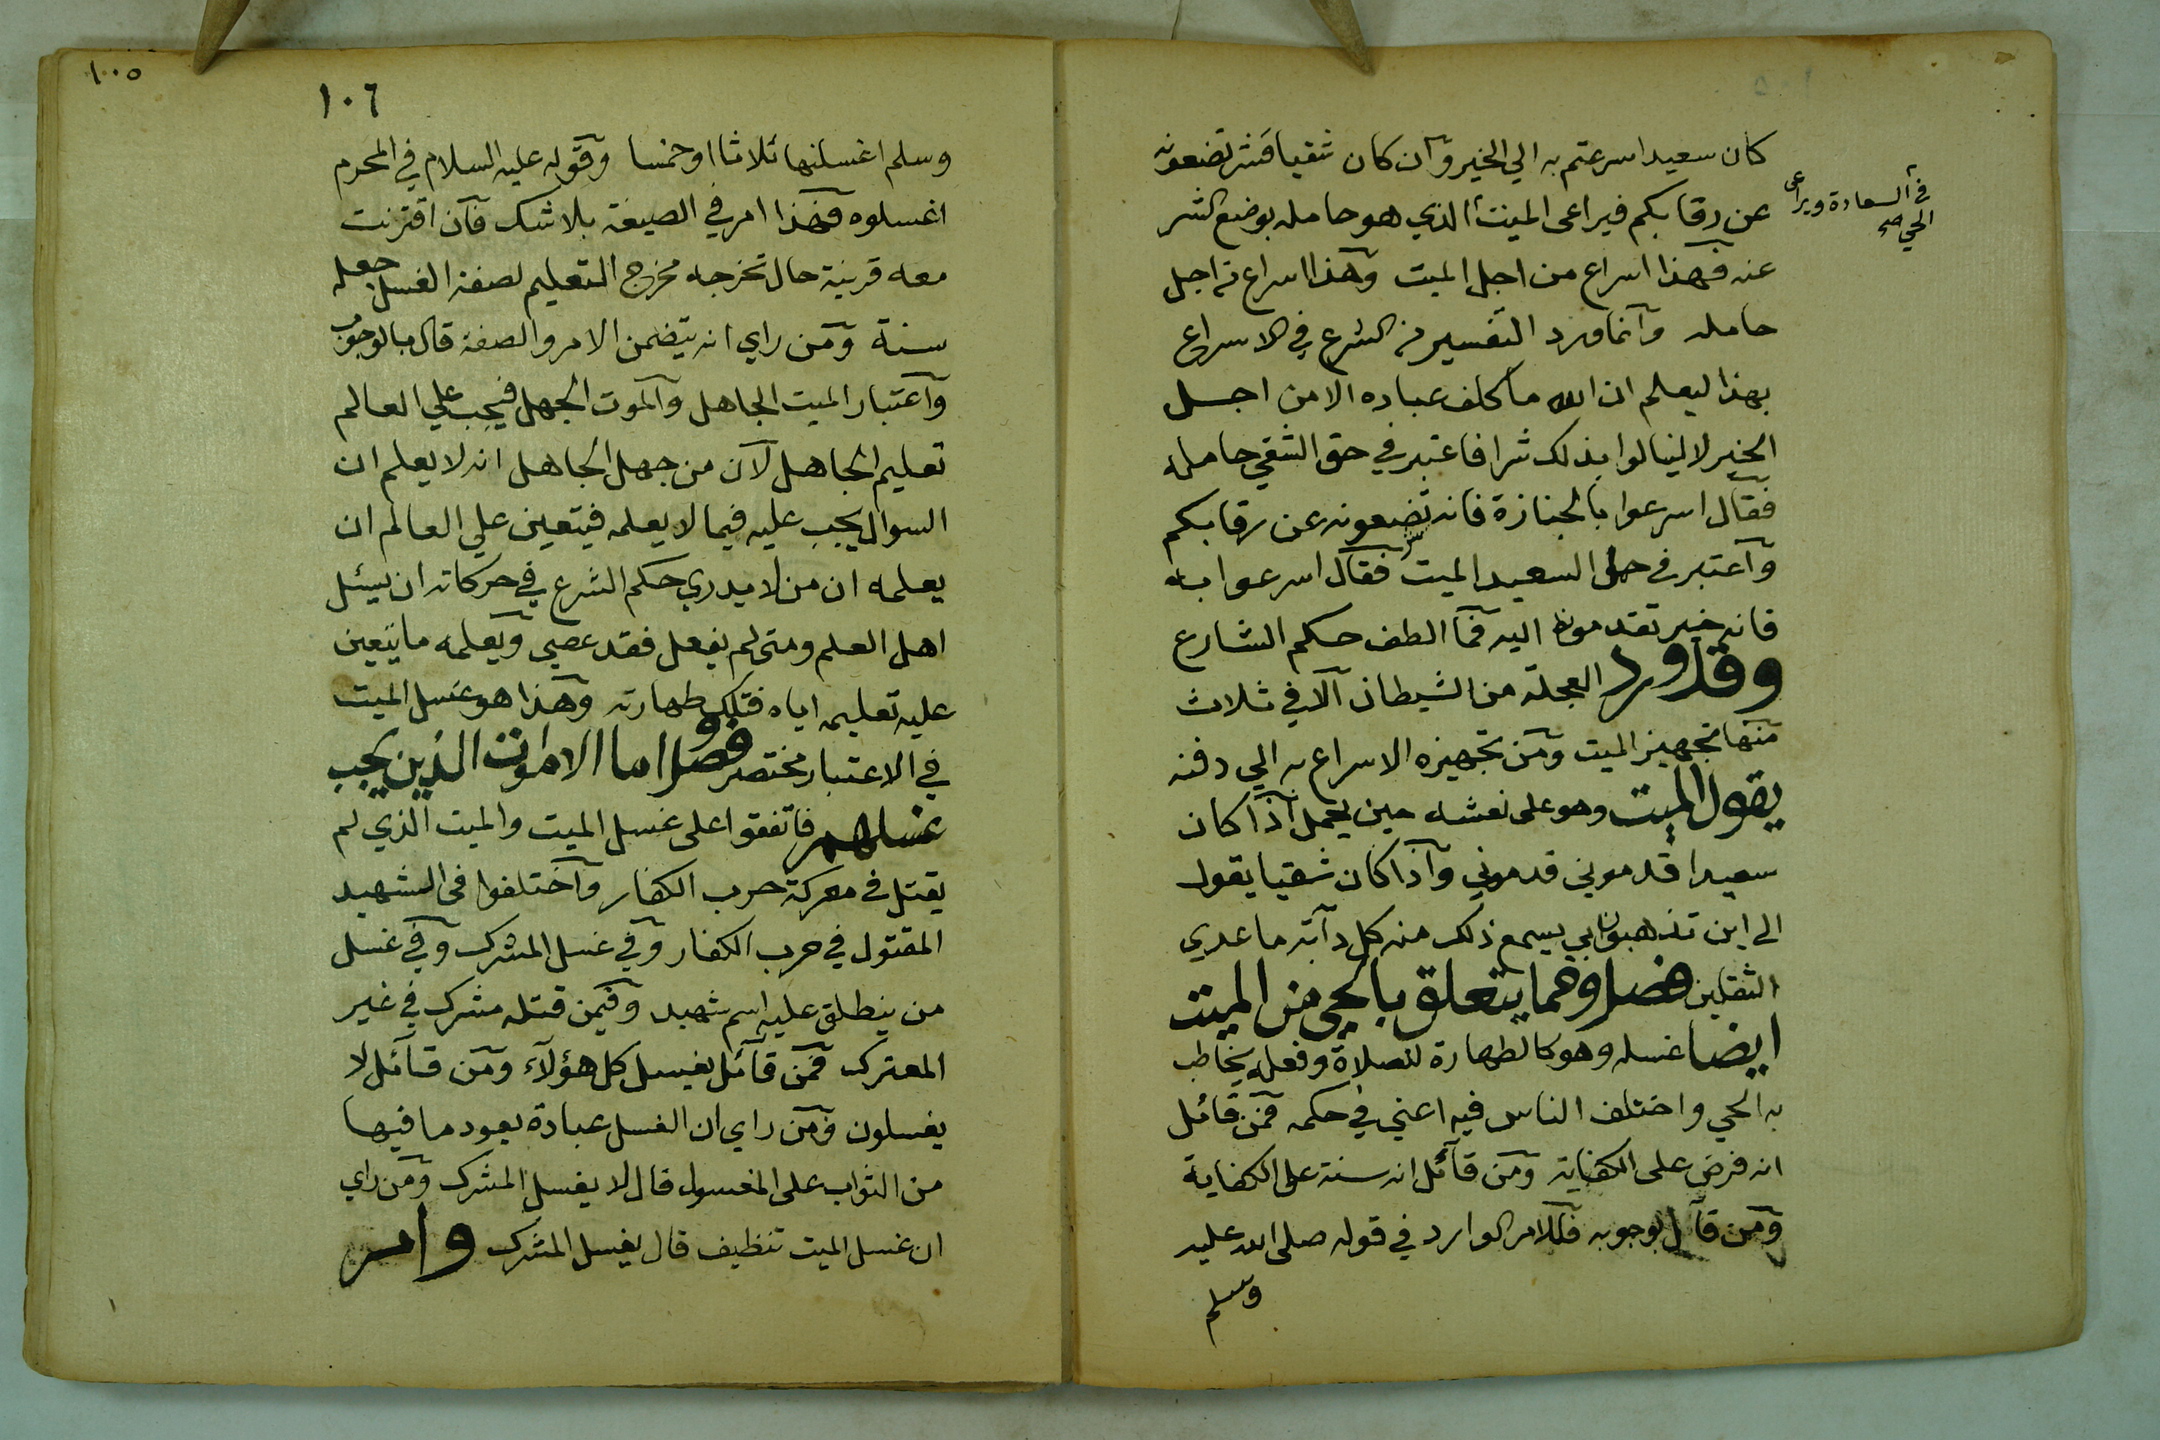 كان سعيدا اسرعتم به الي الخير وان كان شقيا فشر تضعونه
عن رقابكم فيراعى الميت الذي هو حامله بوضع الشر
في السعادة ويراعى
الحي صح
عنه فهذا اسراع من اجل الميت وهذا اسراع من اجل
حامله وانما ورد التفسير من الشرع في الاسراع
بهذا ليعلم ان الله ما كلف عباده الا من اجل
الخير لا لينالوا بذلك شرا فاعتبر في حق الشقي حامله
فقال اسرعوا بالجنازة فانه شر تضعونه عن رقابكم
واعتبر في حق السعيد الميت فقال اسرعوا به
فانه خير تقدمونه اليه فما الطف حكم الشارع
وقد ورد العجلة من الشيطان الا في ثلاث
منها تجهيز الميت ومن تجهيزه الاسراع به الي دفنه
يقول الميت وهو على نعشه حين يحمل اذا كان
سعيدا قدموني قدموني واذا كان شقيا يقول
الى اين تذهبون بي يسمع ذلك منه كل دآبة ما عدي
الثقلين فصل ومما يتعلق بالحي من الميت
ايضا غسله وهو كالطهارة للصلاة وفعله يخاطب
به الحي واختلف الناس فيه اعني في حكمه فمن قائل
انه فرض على الكفاية ومن قآئل انه سنة على الكفاية
ومن قآل بوجوبه فللامر الوارد في قوله صلى الله عليه
وسلم
١٠٥
١٠٦
وسلم اغسلنها ثلاثا او خمسا وقوله عليه السلام في المحرم
اغسلوه فهذا امر في الصيغة بلا شك فان اقترنت
معه قرينة حال تخرجه مخرج التعليم لصفة الغسل جعله
سنة ومن راي انه يتضمن الامر والصفة قال بالوجوب
واعتبار الميت الجاهل والموت الجهل فيجب علي العالم
تعليم الجاهل لان من جهل الجاهل انه لا يعلم ان
السوال يجب عليه فيما لا يعلمه فيتعين علي العالم ان
يعلمه ان من لا يدري حكم الشرع في حركاته ان يسئل
اهل العلم ومتى لم يفعل فقد عصى ويعلمه ما يتعين
عليه تعليمه اياه فتلك طهارته وهذا هو غسل الميت
في الاعتبار مختصر فصل واما الاموات الذين يجب
غسلهم فاتفقوا على غسل الميت والميت الذي لم
يقتل في معركة حرب الكفار واختلفوا في الشهيد
المقتول في حرب الكفار وفي غسل المشرك وفي غسل
من ينطلق عليه اسم شهيد وفيمن قتله مشرك في غير
المعترك فمن قآئل يغسل كل هؤلآء ومن قآئل لا
يغسلون فمن راي ان الغسل عبادة يعود ما فيها
من الثواب على المغسول قال لا يغسل المشرك ومن راي
ان غسل الميت تنظيف قال يغسل المشرك وامر